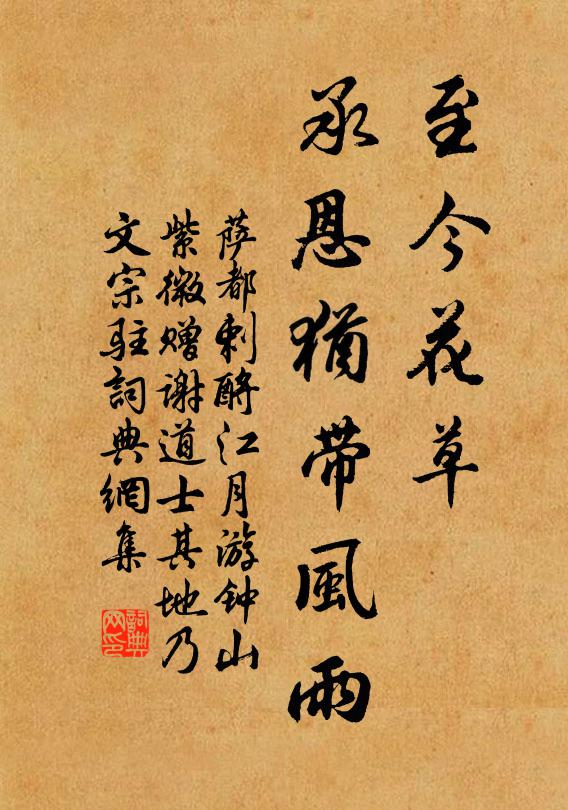 至今花草
承恩猶带風雨
萨都剌酹江月游钟山
紫微赠谢道士其地乃
文宗驻詞典網集
詞典
网印